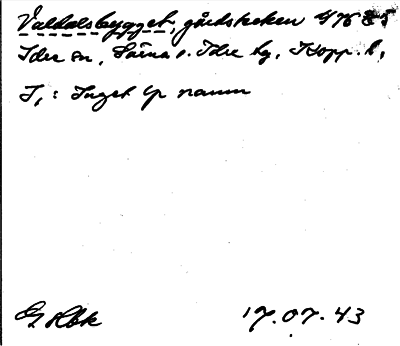 Valdalsbygget, gårdstecken 4768
Idre sn, Särna o. Idre tg, Kopp. l,
I, : Inget up namn
G Hbk 17.07.43